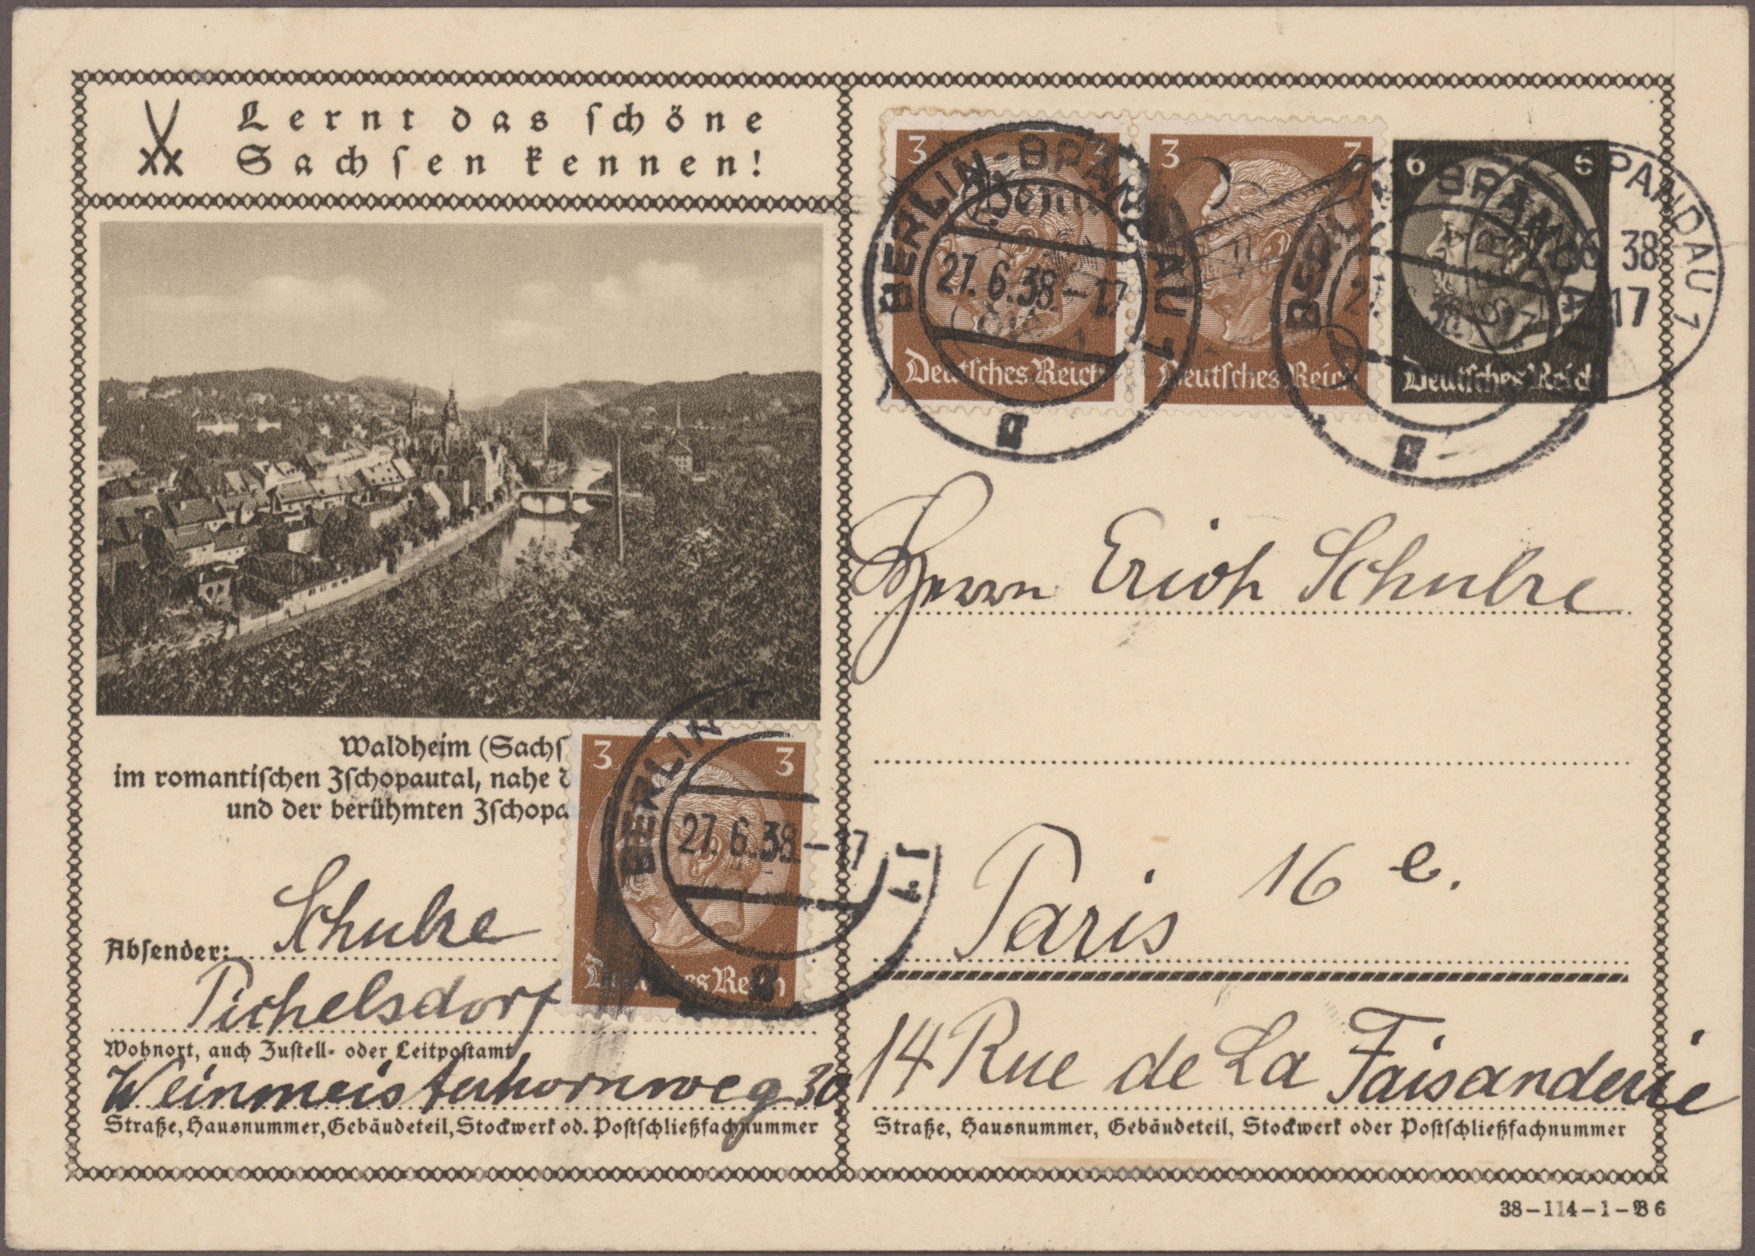 Lernt das schöne
Sachsen kennen!
Waldheim (Sachs
im romantischen Zschopautal, nahe d
und der berühmten Zschopa
Absender: Schulze
Pichelsdorf
Wohnort, auch Zustell- oder Leitpostamt
Weinmeisterhornweg 30
Straße, Hausnummer, Gebäudeteil, Stockwerk od. Postschließfachnummer
3 3
Deutsches Reich
BERLIN-
27.6.38.-17
3
Deutsches Reich
3
Deutsches Reich
6 6
Deutsches Reich
BERLIN-SPANDAU 1
27.6.38-17
g
SPANDAU 1
38
17
Herrn Erich Schulze
Paris 16 e.
14 Rue de La Faisanderie
Straße, Hausnummer, Gebäudeteil, Stockwerk oder Postschließfachnummer
38-114-1-B 6